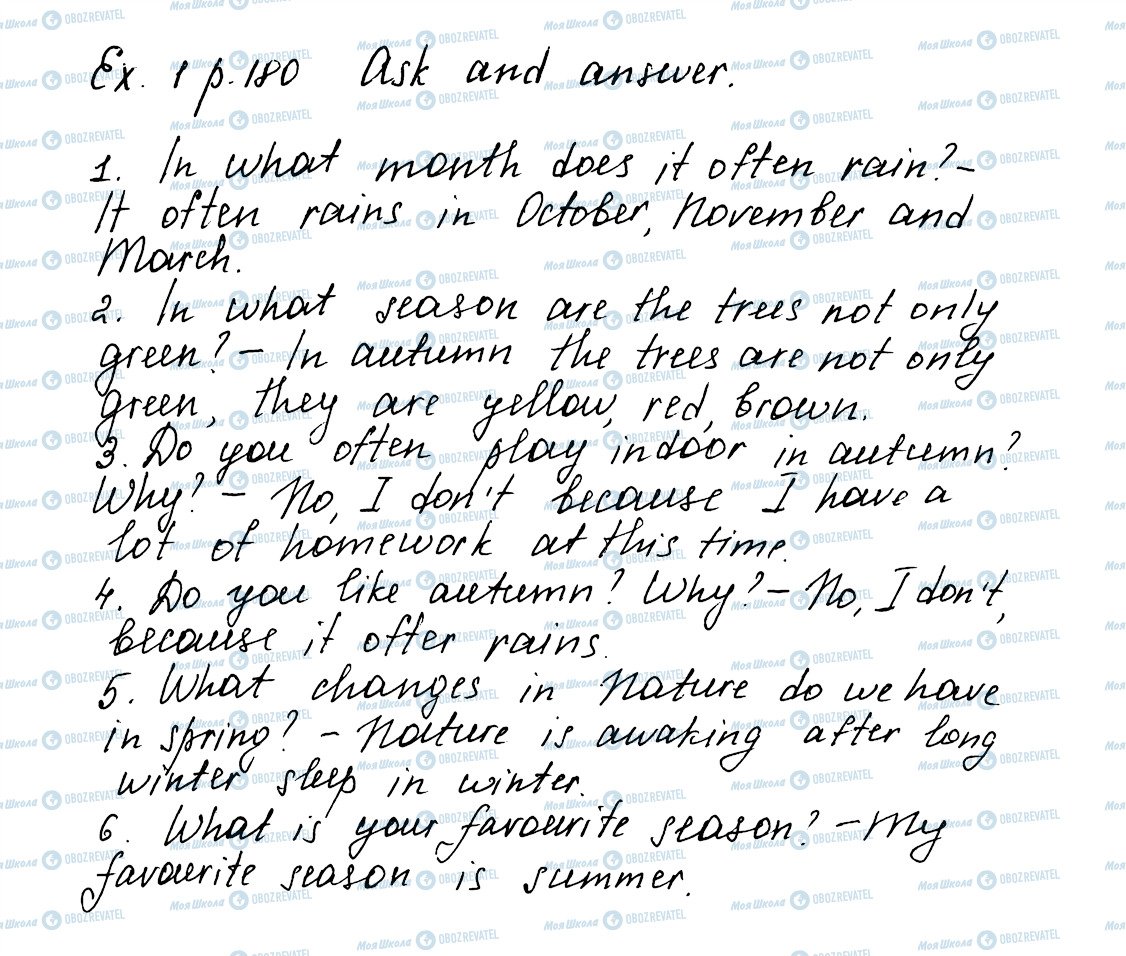 Ex. 1 p. 180 Ask and answer.
1. In what month does it often rain? –
It often rains in October, November and
March.
2. In what season are the trees not only
green? – In autumn the trees are not only
green, they are yellow, red, brown.
3. Do you often play indoor in autumn?
Why? – No, I don't because I have a
lot of homework at this time.
4. Do you like autumn? Why? – No, I don't,
because it ofter rains.
5. What changes in Nature do we have
in spring? – Nature is awaking after long
winter sleep in winter.
6. What is your favourite season? – My
favourite season is summer.